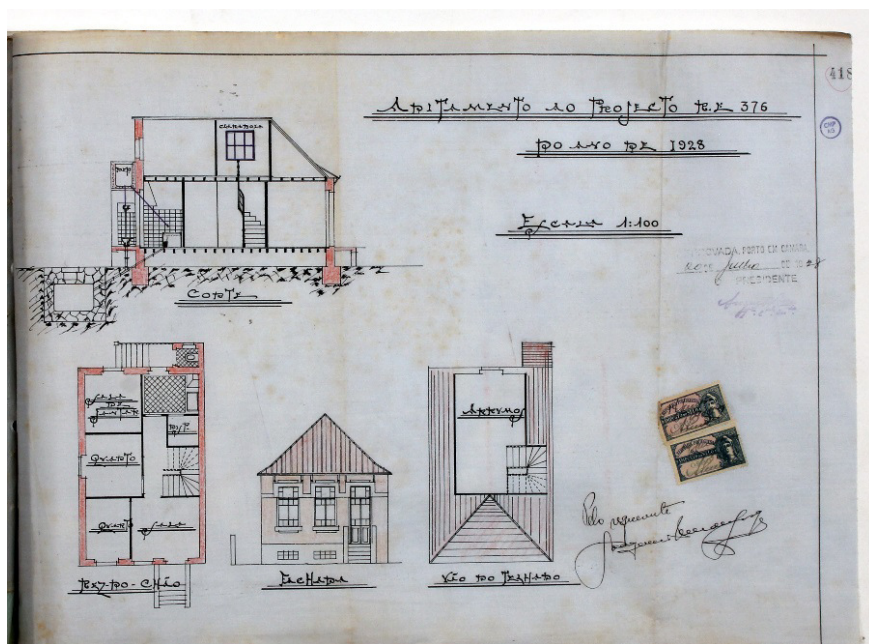 418
ADITAMENTO AO PROJECTO R.E 376
DO ANO DE 1928
ESCALA 1:100
CLARABOIA
CORTE
APROVADA. PORTO EM CAMARA,
20 DE Julho DE 1928
PRESIDENTE
SALA
DE
JANTAR
QUARTO
QUARTO
SALA
DESP.
ARRUMOS
REZ-DO-CHÃO
FACHADA
VÃO DO TELHADO
Pelo requerente